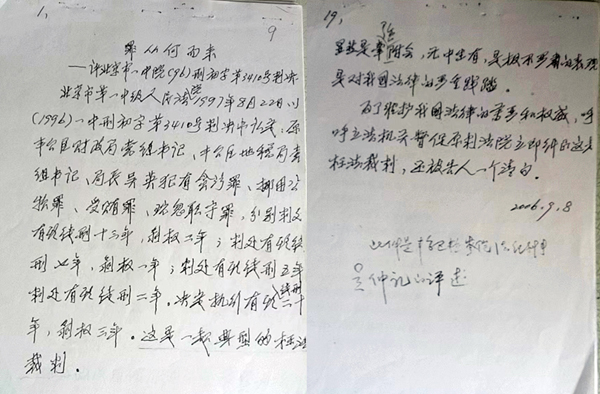 1,
9
罪从何而来
——评北京市一中院(96)刑初字第3410号判决
北京市第一中级人民法院1997年8月22日以
(1996)一中刑初字第3410号判决书认定,原
丰台区财政局党组书记、丰台区地税局党
组书记、局长吴英犯有贪污罪、挪用公
款罪、受贿罪、玩忽职守罪,分别判处
有期徒刑十三年,剥权二年;判处有期徒
刑七年,剥权一年;判处有期徒刑五年
判处有期徒刑二年。决定执行有期徒刑二十
年,剥权三年。这是一款典型的枉法
裁判。
19,
显然是牵强附会,无中生有,是极不严肃的表现
是对我国法律的严重践踏。
为了维护我国法律的尊严和权威,呼
呼立法机关督促原判法院立即纠正这
枉法裁判,还被告人一个清白。
2006.9.8
吴仲记的评述